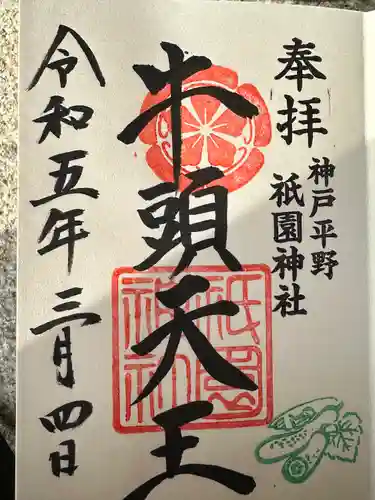 奉拝
神戸平野
祇園神社
牛頭天王
祇園神社
令和五年三月四日